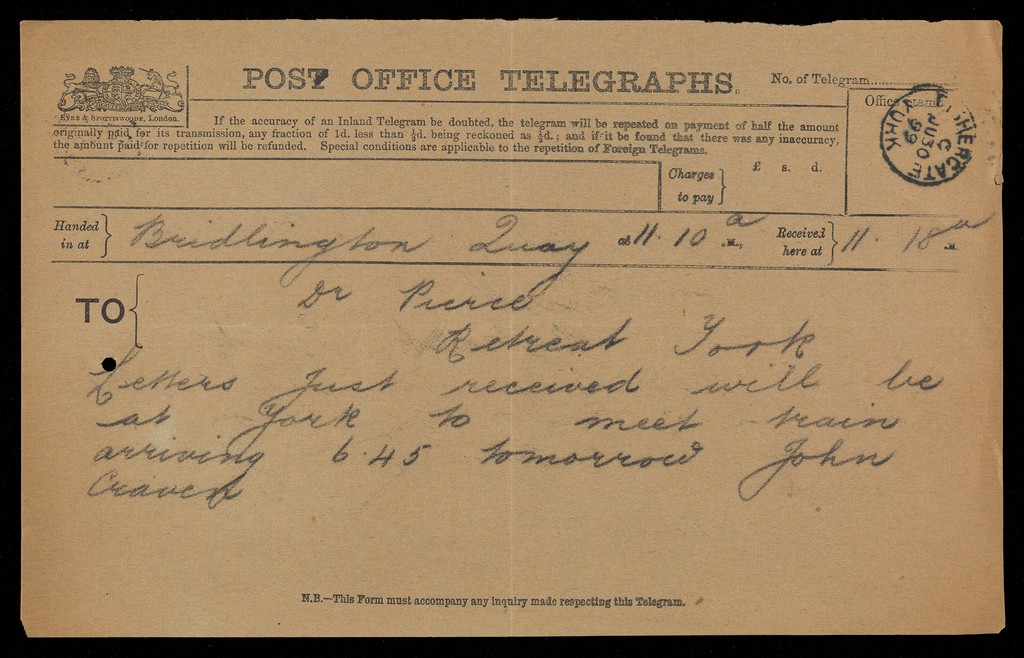 POST OFFICE TELEGRAPHS.
No. of Telegram
EYRE & SPOTTISWOODE, London.
If the accuracy of an Inland Telegram be doubted, the telegram will be repeated on payment of half the amount
originally paid for its transmission, any fraction of 1d. less than ½d. being reckoned as ½d.; and if it be found that there was any inaccuracy,
the amount paid for repetition will be refunded. Special conditions are applicable to the repetition of Foreign Telegrams.
Office Stamp
YORK
C
JU 30
99
Charges to pay
£ s. d.
Handed in at Bridlington Quay at 11.10 a M., Received here at 11.18 a M.
TO
Dr Pierce
Retreat York
Letters just received will be
at York to meet train
arriving 6.45 tomorrow John
Craven
N.B.—This Form must accompany any inquiry made respecting this Telegram.